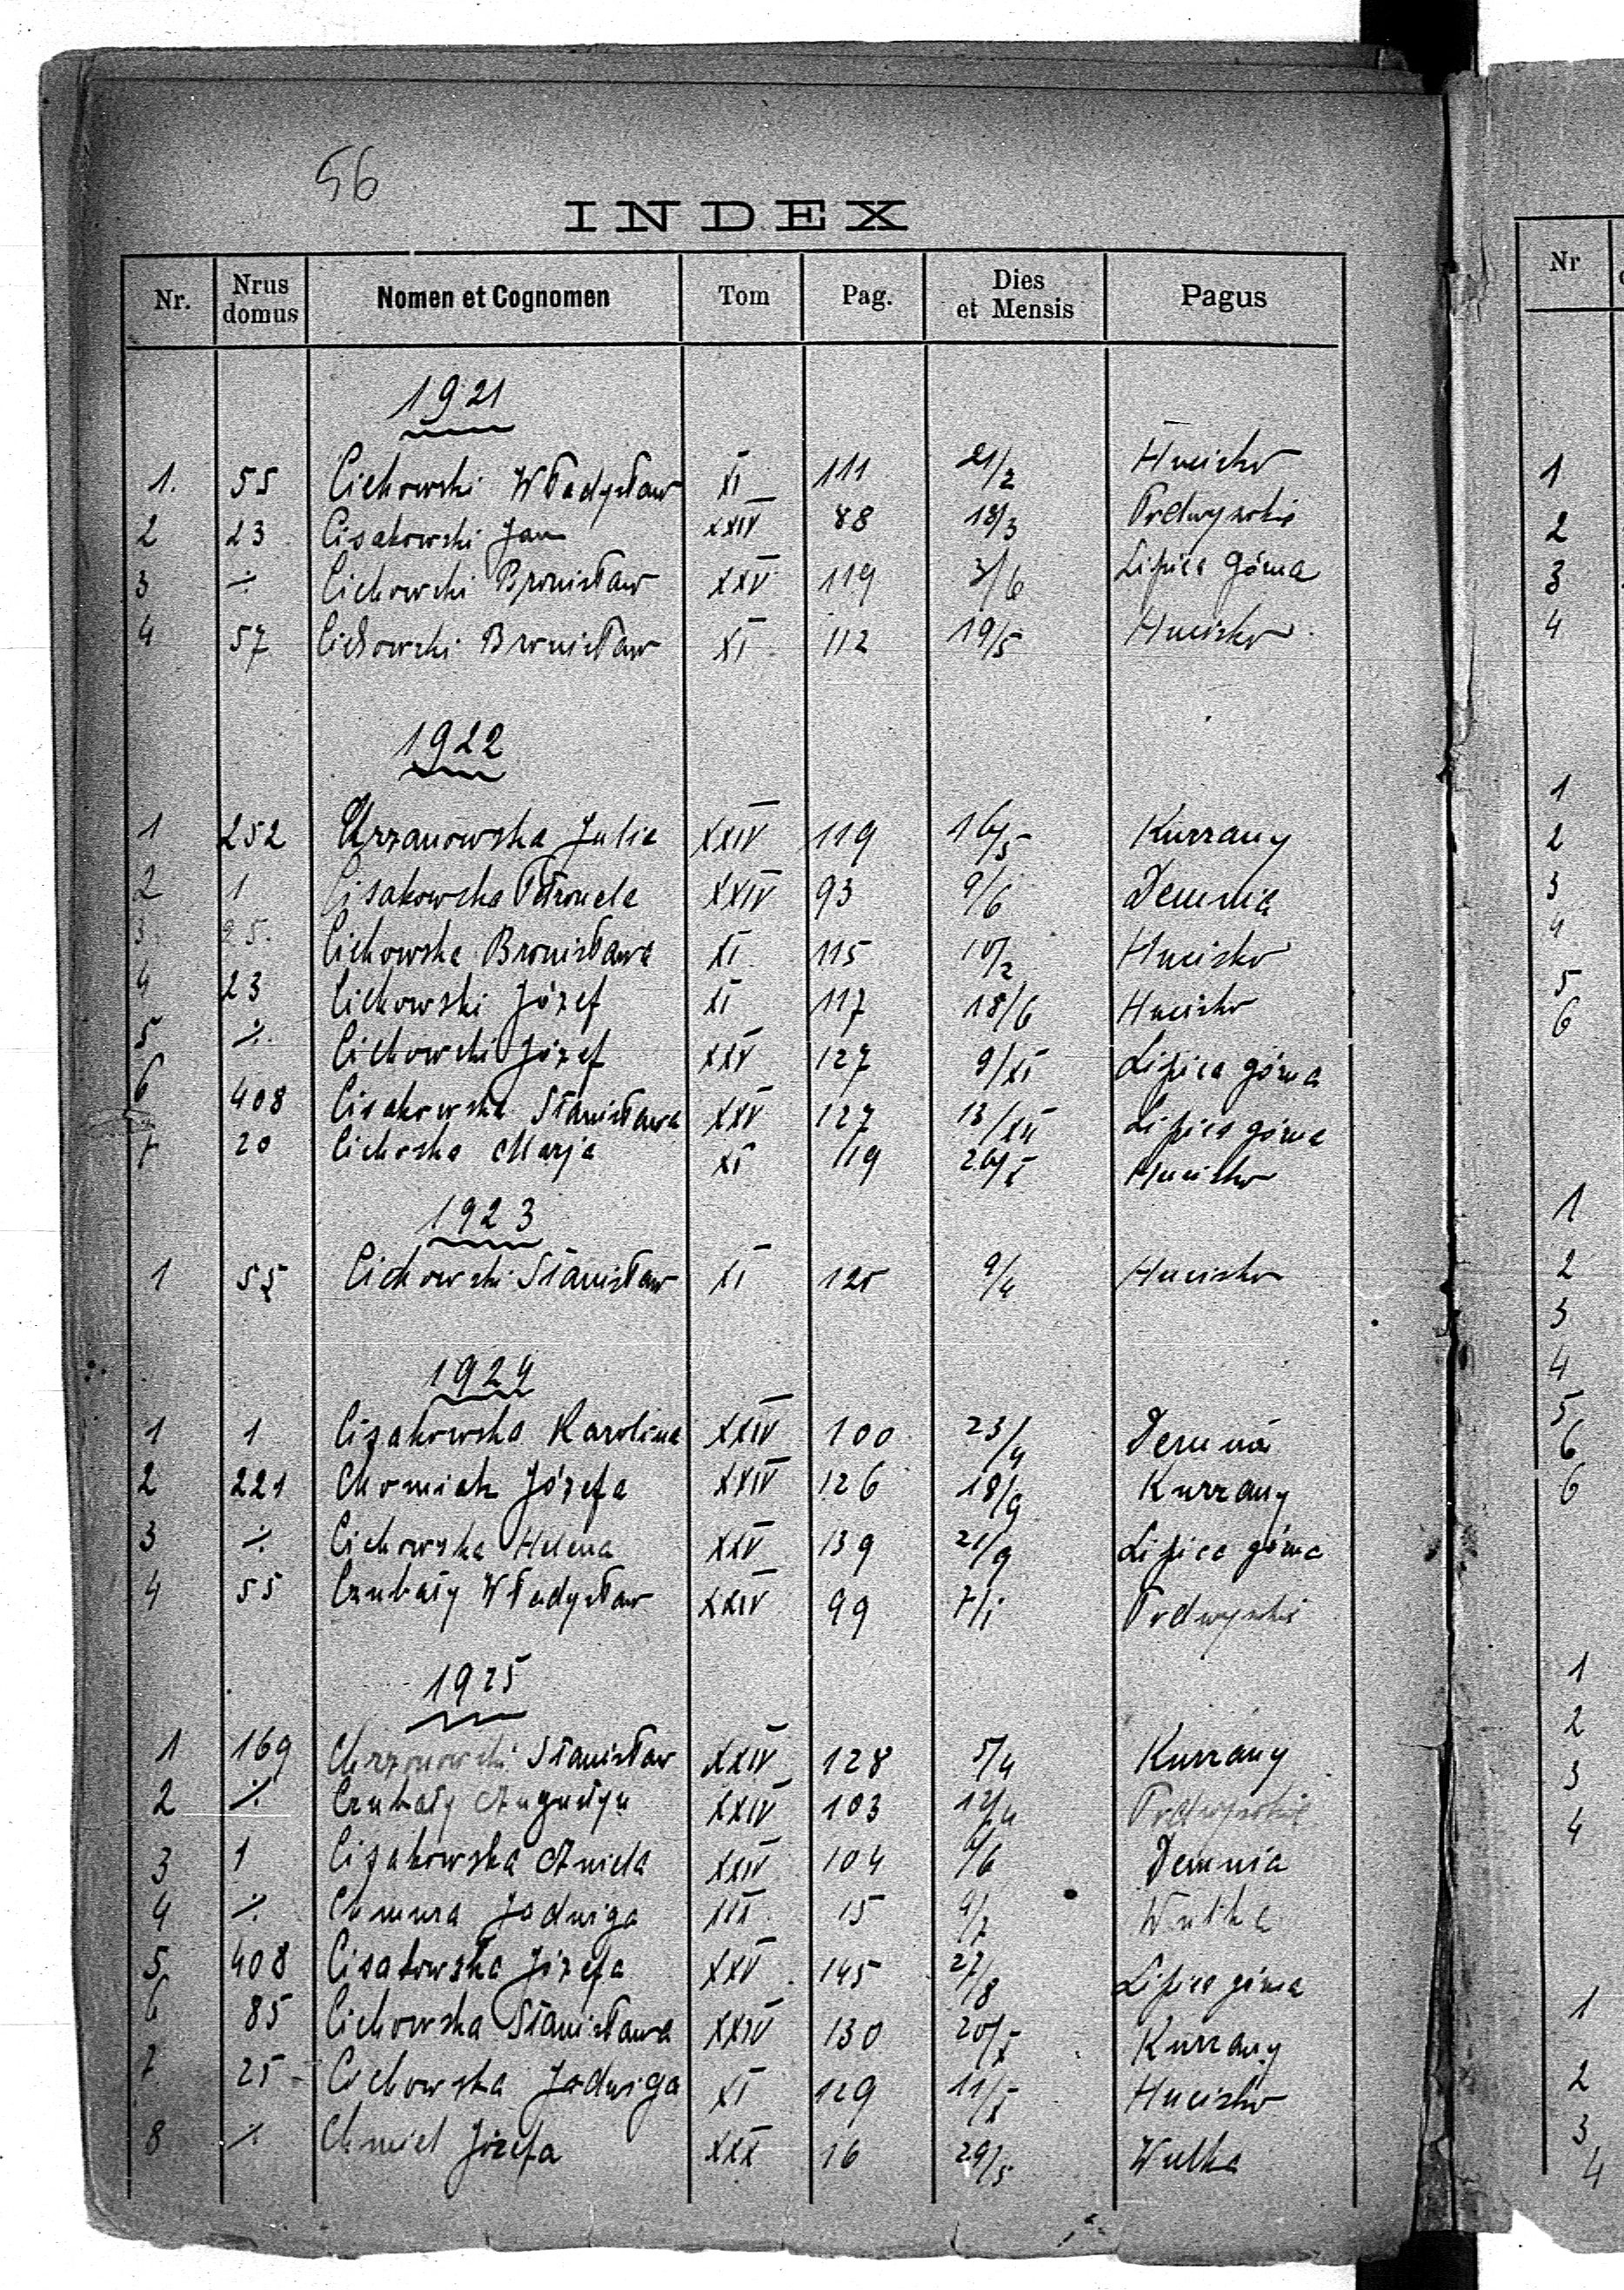 56
INDEX
Nr. Nrus domus Nomen et Cognomen Tom Pag. Dies et Mensis Pagus
1921
1. 55 Cichowski Władysław XI 111 21/2 Hucisko
2 23 Cisakowski Jan XXIV 88 18/3 Podwysokie
3 ·/· Cichowski Bronisław XXV 119 3/6 Lipica górna
4 57 Cichowski Bronisław XI 112 19/5 Hucisko
1922
1 252 Chrzanowska Julia XXIV 119 16/5 Kurzany
2 1 Cisakowska Petronela XXIV 93 9/6 Demnia
3. 25. Cichowska Bronisława XI 115 10/2 Hucisko
4 23 Cichowski Józef XI 117 18/6 Hucisko
5 ·/· Cichowski Józef XXV 127 9/XI Lipica górna
6 408 Cisakowska Stanisława XXV 127 13/XII Lipica górna
7 20 Cichoska Marja XI 119 Hucisko
1923
1 55 Cichowski Stanisław XI 125 9/4 Hucisko
1924
1 1 Cisakowska Karolina XXIV 100 23/4 Demnia
2 221 Chomiak Józefa XXIV 126 18/9 Kurzany
3 ·/· Cichowska Helena XXV 139 21/9 Lipica górna
4 55 Czubaty Władysław XXIV 99 7/1 Podwysokie
1925
1 169 Chrzonowski Stanisław XXIV 128 5/4 Kurzany
2 ·/· Czubaty XXIV 103 12/4 Podwysokie
3 1 Cisakowska Aniela XXIV 104 Demnia
4 ·/· Chmura Jadwiga XXX 15 9/7 Wulka
5 408 Cisakowska Józefa XXV 145 27/8 Lipica górna
6 85 Cichowska Stanisława XXIV 130 20/X Kurzany
7 25 Cichowska Jadwiga XI 129 11/X Hucisko
8 ·/· Chmiel Józefa XXX 16 29/5 Wulka
Nr
1
2
3
4
1
2
3
4
5
6
1
2
3
4
5
6
6
1
2
3
4
1
2
3
4